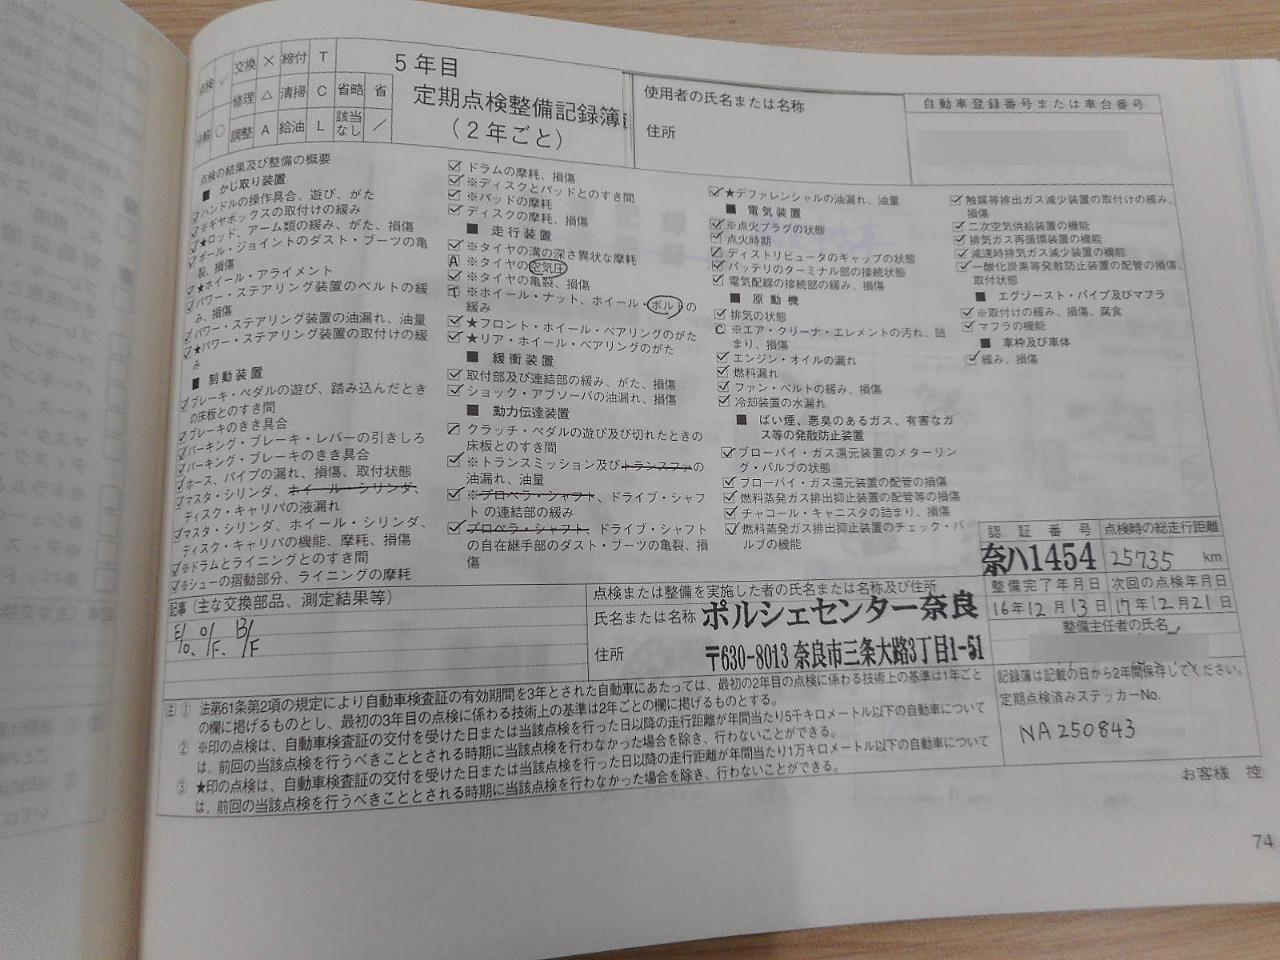 点検 ✓ 交換 × 締付 T
修理 △ 清掃 C 省略 省
分解 ○ 調整 A 給油 L 該当なし ／
5年目
定期点検整備記録簿
（2年ごと）
使用者の氏名または名称
住所
自動車登録番号または車台番号
点検の結果及び整備の概要
■ かじ取り装置
ハンドルの操作具合、遊び、がた
※ギヤボックスの取付けの緩み
★ロッド、アーム類の緩み、がた、損傷
ボール・ジョイントのダスト・ブーツの亀
裂、損傷
★ホイール・アライメント
パワー・ステアリング装置のベルトの緩
み、損傷
パワー・ステアリング装置の油漏れ、油量
★パワー・ステアリング装置の取付けの緩
み
■ 制動装置
ブレーキ・ペダルの遊び、踏み込んだとき
の床板とのすき間
ブレーキのきき具合
パーキング・ブレーキ・レバーの引きしろ
パーキング・ブレーキのきき具合
ホース、パイプの漏れ、損傷、取付状態
マスタ・シリンダ、ホイール・シリンダ、
ディスク・キャリパの液漏れ
マスタ・シリンダ、ホイール・シリンダ、
ディスク・キャリパの機能、摩耗、損傷
※ドラムとライニングとのすき間
※シューの摺動部分、ライニングの摩耗
ドラムの摩耗、損傷
※ディスクとパッドとのすき間
※パッドの摩耗
ディスクの摩耗、損傷
■ 走行装置
※タイヤの溝の深さ異状な摩耗
A ※タイヤの空気圧
※タイヤの亀裂、損傷
T ※ホイール・ナット、ホイール・ボルトの
緩み
★フロント・ホイール・ベアリングのがた
★リア・ホイール・ベアリングのがた
■ 緩衝装置
取付部及び連結部の緩み、がた、損傷
ショック・アブソーバの油漏れ、損傷
■ 動力伝達装置
クラッチ・ペダルの遊び及び切れたときの
床板とのすき間
※トランスミッション及びトランスファの
油漏れ、油量
※プロペラ・シャフト、ドライブ・シャフ
トの連結部の緩み
プロペラ・シャフト、ドライブ・シャフト
の自在継手部のダスト・ブーツの亀裂、損
傷
★デファレンシャルの油漏れ、油量
■ 電気装置
※点火プラグの状態
点火時期
ディストリビュータのキャップの状態
バッテリのターミナル部の接続状態
電気配線の接続部の緩み、損傷
■ 原動機
排気の状態
C ※エア・クリーナ・エレメントの汚れ、詰
まり、損傷
エンジン・オイルの漏れ
燃料漏れ
ファン・ベルトの緩み、損傷
冷却装置の水漏れ
■ ばい煙、悪臭のあるガス、有害なガ
ス等の発散防止装置
ブローバイ・ガス還元装置のメターリン
グ・バルブの状態
ブローバイ・ガス還元装置の配管の損傷
燃料蒸発ガス排出抑止装置の配管等の損傷
チャコール・キャニスタの詰まり、損傷
燃料蒸発ガス排出抑止装置のチェック・バ
ルブの機能
触媒等排出ガス減少装置の取付けの緩み、
損傷
二次空気供給装置の機能
排気ガス再循環装置の機能
減速時排気ガス減少装置の機能
一酸化炭素等発散防止装置の配管の損傷、
取付状態
■ エグゾースト・パイプ及びマフラ
※取付けの緩み、損傷、腐食
マフラの機能
■ 車枠及び車体
緩み、損傷
認証番号 点検時の総走行距離
奈ハ1454 25735 km
整備完了年月日 次回の点検年月日
16年12月13日 17年12月21日
整備主任者の氏名
記事（主な交換部品、測定結果等）
E/O. O/F. B/F
点検または整備を実施した者の氏名または名称及び住所
氏名または名称 ポルシェセンター奈良
住所 〒630-8013 奈良市三条大路3丁目1-51
記録簿は記載の日から2年間保存してください。
定期点検済みステッカーNo.
NA250843
注 ① 法第61条第2項の規定により自動車検査証の有効期間を3年とされた自動車にあたっては、最初の2年目の点検に係わる技術上の基準は1年ごと
の欄に掲げるものとし、最初の3年目の点検に係わる技術上の基準は2年ごとの欄に掲げるものとする。
② ※印の点検は、自動車検査証の交付を受けた日または当該点検を行った日以降の走行距離が年間当たり5千キロメートル以下の自動車について
は、前回の当該点検を行うべきこととされる時期に当該点検を行わなかった場合を除き、行わないことができる。
③ ★印の点検は、自動車検査証の交付を受けた日または当該点検を行った日以降の走行距離が年間当たり1万キロメートル以下の自動車について
は、前回の当該点検を行うべきこととされる時期に当該点検を行わなかった場合を除き、行わないことができる。
お客様 控
74